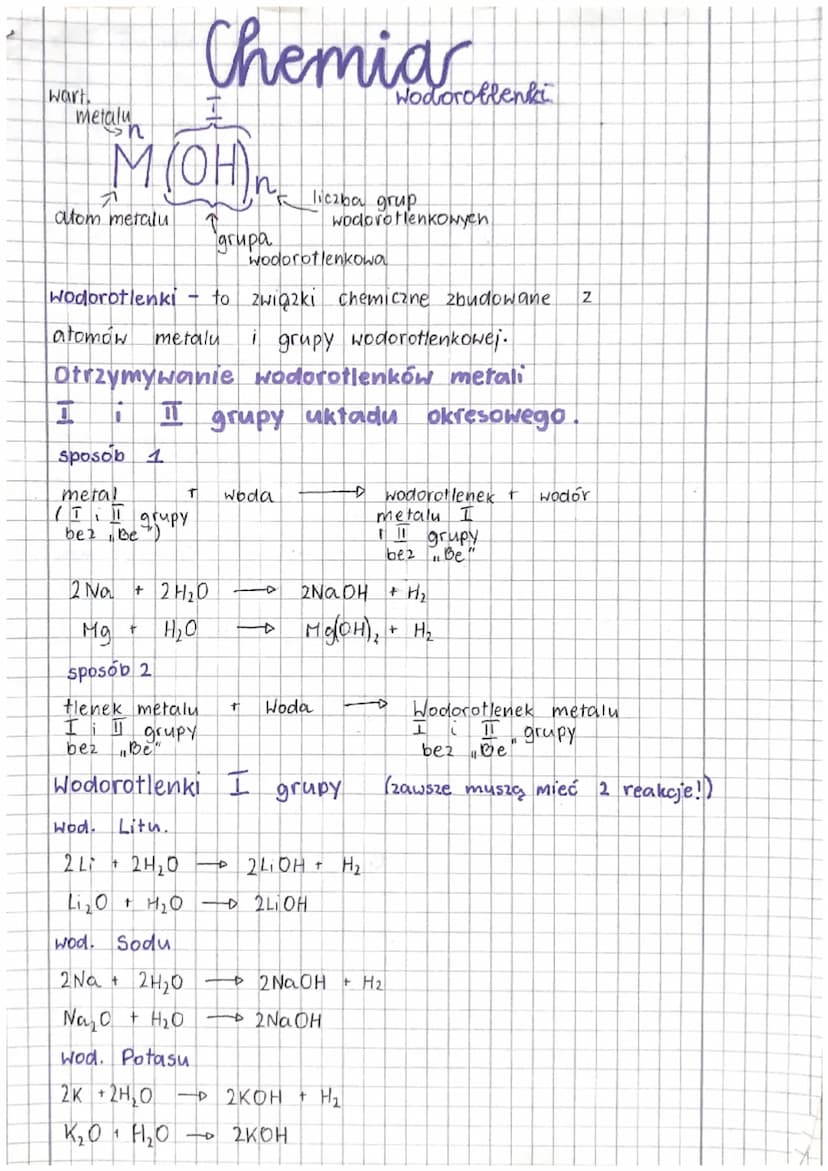 Chemia
wodorotlenki
wart.
metalu
n
I
M(OH)n
atom metalu
liczba grup
wodorotlenkowych
grupa
wodorotlenkowa
wodorotlenki - to związki chemiczne zbudowane z
atomów metalu i grupy wodorotlenkowej.
Otrzymywanie wodorotlenków metali
I i II grupy układu okresowego.
sposób 1
metal + woda → wodorotlenek + wodór
(I i II grupy metalu I
bez „Be") i II grupy
bez „Be"
2Na + 2H₂O → 2NaOH + H₂
Mg + H₂O → Mg(OH)₂ + H₂
sposób 2
tlenek metalu + Woda → Wodorotlenek metalu
I i II grupy I i II grupy
bez „Be" bez „Be"
Wodorotlenki I grupy (zawsze muszą mieć 2 reakcje!)
wod. Litu.
2Li + 2H₂O → 2LiOH + H₂
Li₂O + H₂O → 2LiOH
wod. Sodu
2Na + 2H₂O → 2NaOH + H₂
Na₂O + H₂O → 2NaOH
wod. Potasu
2K + 2H₂O → 2KOH + H₂
K₂O + H₂O → 2KOH